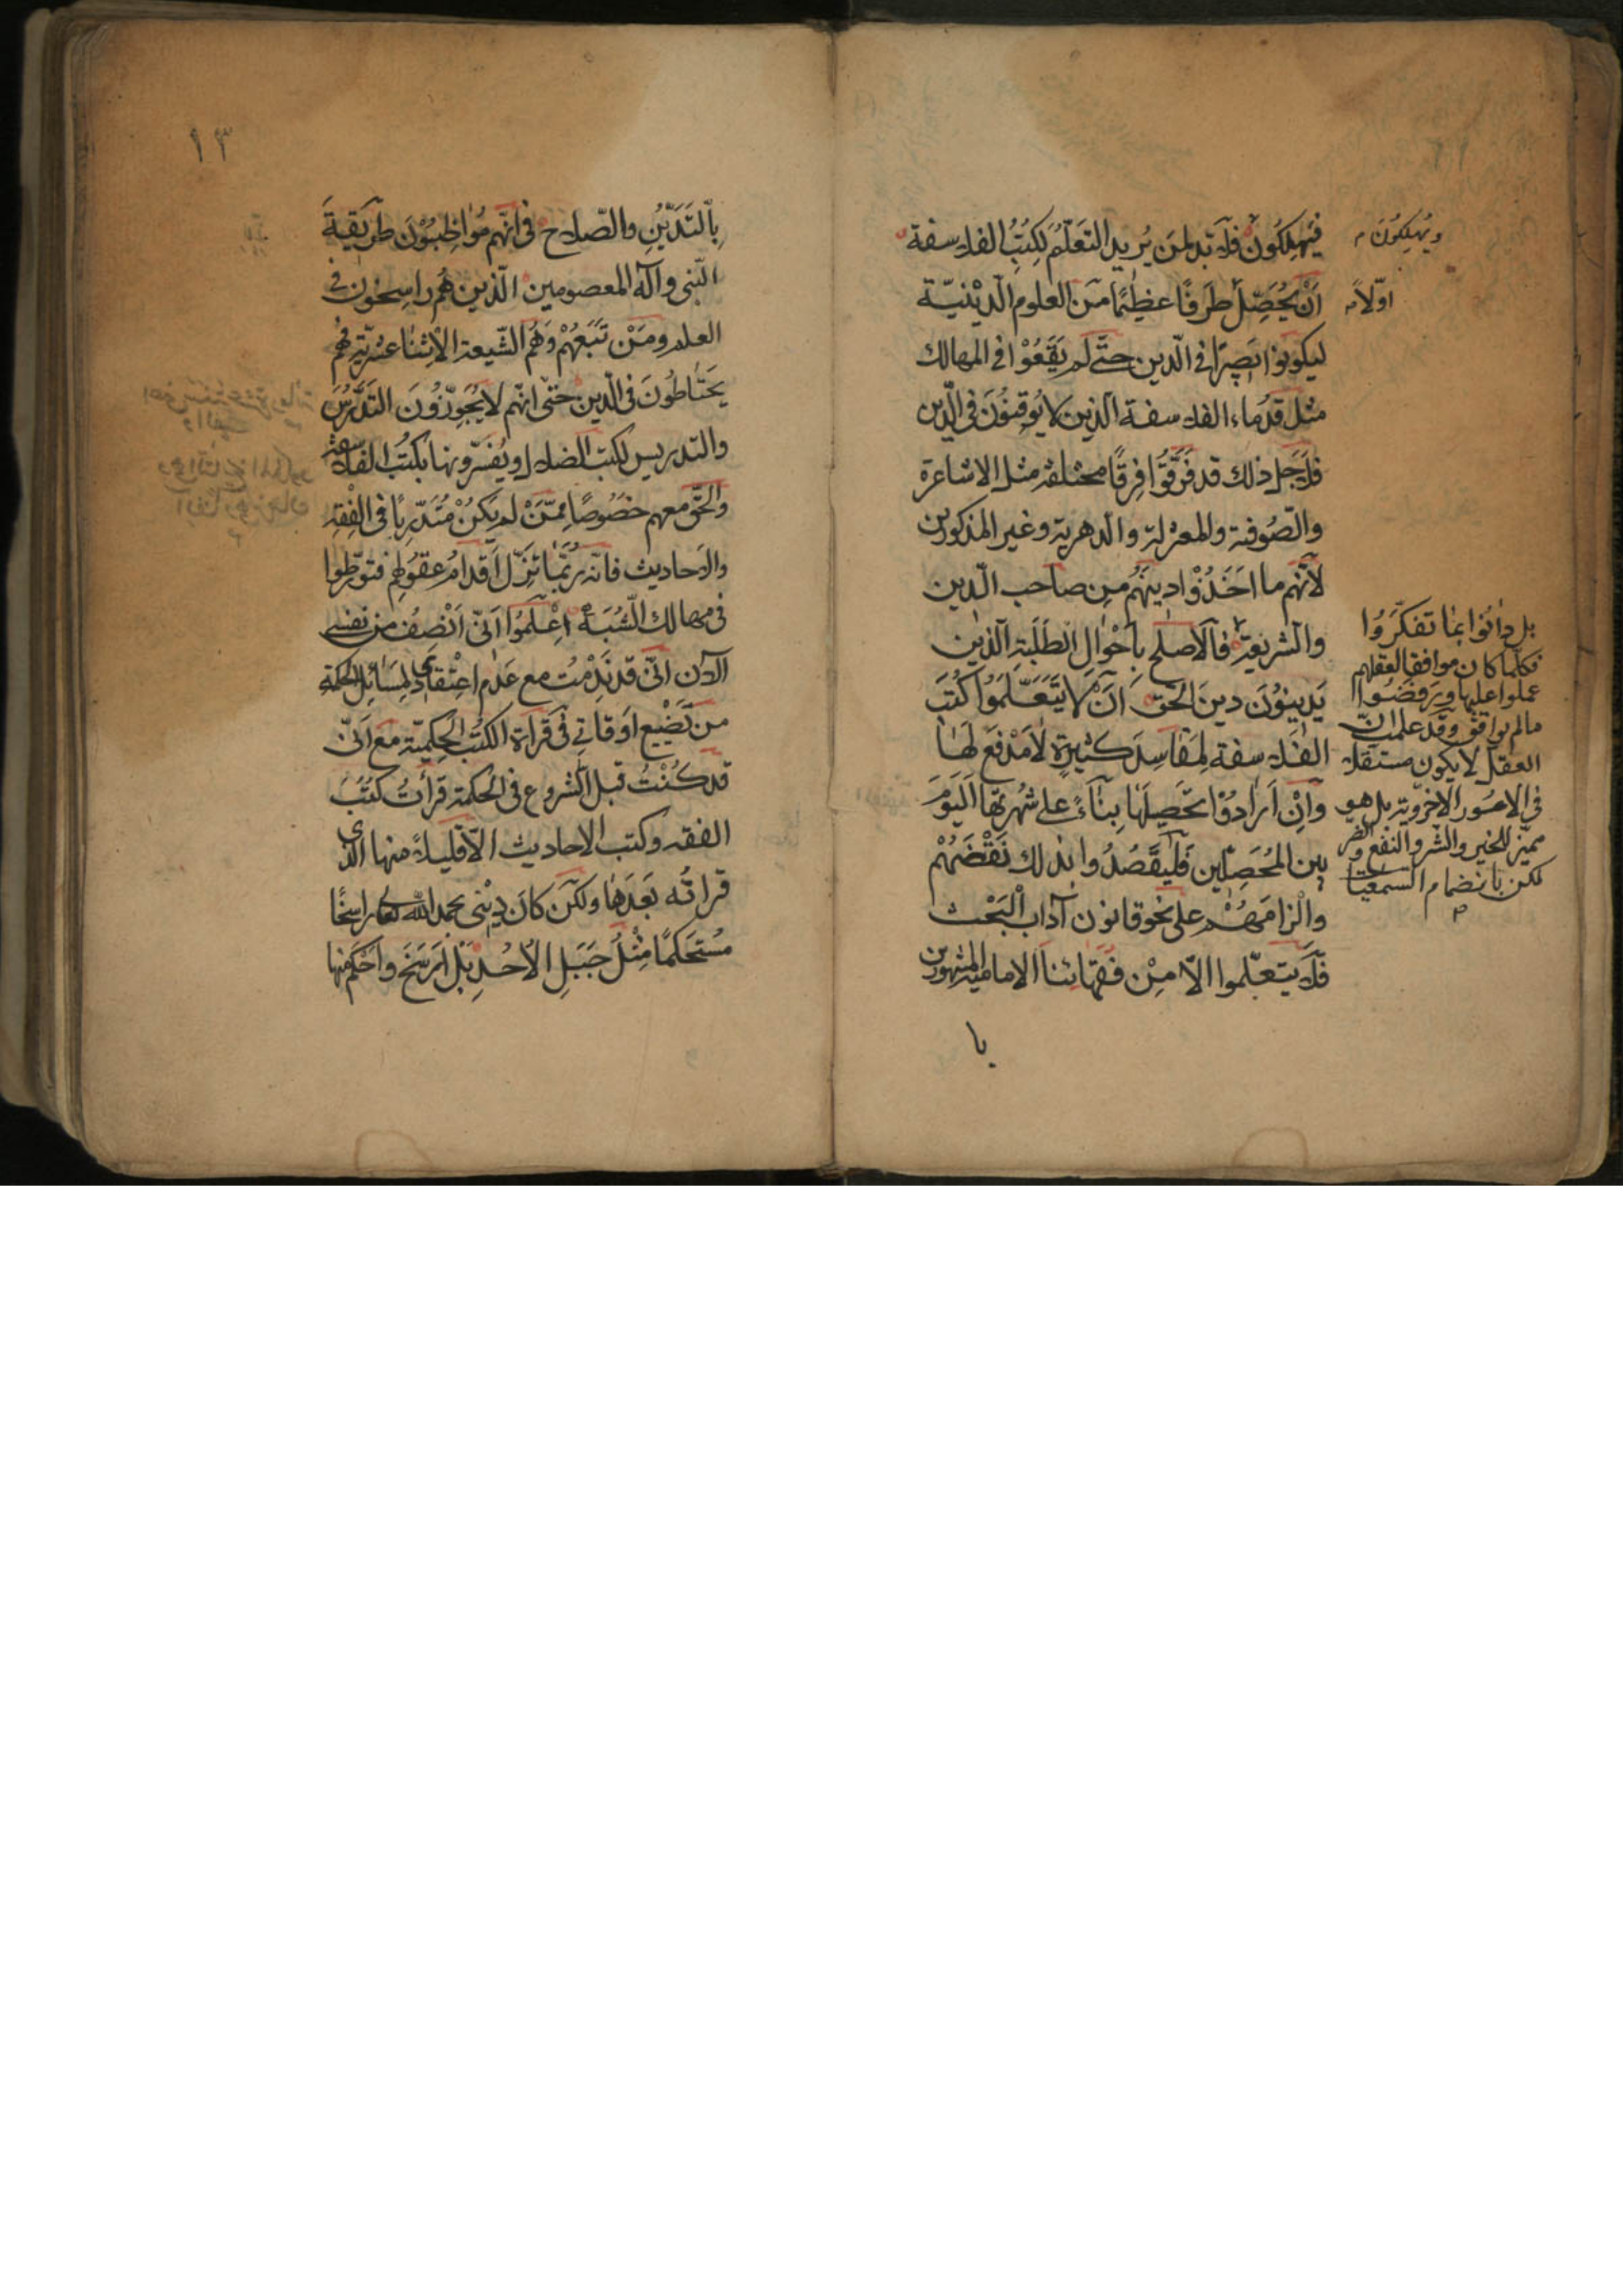 فيهلكون فلا بد لمن يريد التعلم لكتب الفلاسفة
ويهلكون
ان يحصل طرفا عظيما من العلوم الدينية
اولا
ليكونوا بصيرا في الدين حتى لم يقعوا في المهالك
مثل قدماء الفلاسفة الذين لا يوقنون في الدين
فلاجل ذلك قد فرقوا فرقا مختلفة مثل الاشاعرة
والصوفية والمعتزلة والدهرية وغير المذكورين
لانهم ما اخذوا دينهم من صاحب الدين
والشريعة فالاصلح باحوال الطلبة الذين
يدينون دين الحق ان لا يتعلموا كتب
الفلاسفة لمفاسد كثيرة لا مدفع لها
وان ارادوا تحصيلها بناء على شهرتها اليوم
بين المحصلين فليقصدوا بذلك نقضهم
والزامهم على نحو قانون آداب البحث
فلا يتعلموا الا من فقهائنا الامامية المشهورين
با
بل دانوا بما تفكروا
فكلما كان موافقا لعقلهم
عملوا عليها ويرفضوا
مالم يوافق وقد علمت ان
العقل لا يكون مستقلا
في الامور الاخروية بل هو
مميز للخير والشر والنفع والضر
لكن بانضمام السمعيات
١٣
بالتدين والصلاح في انهم مواظبون طريقة
النبي وآله المعصومين الذين هم راسخون في
العلم ومن تبعهم وهم الشيعة الاثنا عشرية فهم
يحتاطون في الدين حتى انهم لا يجوزون التدرس
والتدريس لكتب الضلال ويفسرونها بكتب الفلاسفة
والحق معهم خصوصا ممن لم يكن متدربا في الفقه
والاحاديث فانه ربما تزل اقدام عقولهم فتورطوا
في مهالك الشبه اعلموا اني انصف من نفسي
الآن اني قد ندمت مع عدم اعتقادي لمسائل الحكمة
من تضيع اوقاتي في قراءة الكتب الحكمية مع اني
قد كنت قبل الشروع في الحكمة قرأت كتب
الفقه وكتب الاحاديث الا قليلا منها الذي
قراته بعدها ولكن كان ديني بحمد الله تعالى راسخا
مستحكما مثل جبل الاحد بل ارسخ واحكم منها